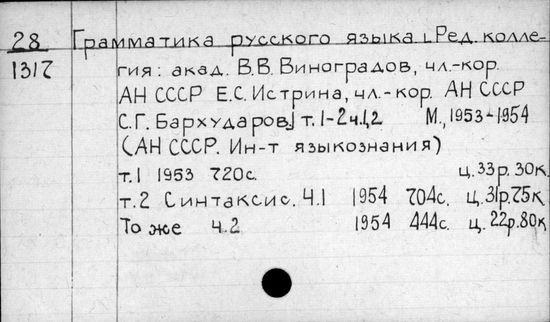 28 Грамматика русского языка [Ред. колле-
1317 гия: акад. В.В. Виноградов, чл.-кор.
АН СССР Е.С. Истрина, чл.-кор. АН СССР
С.Г. Бархударов] т.1-2 ч.1,2 М., 1953-1954
(АН СССР. Ин-т языкознания)
т.1 1953 720с. ц. 33р. 30к.
т.2 Синтаксис. Ч.1 1954 704с. ц. 31р. 75к
То же ч.2 1954 444с. ц. 22р. 80к